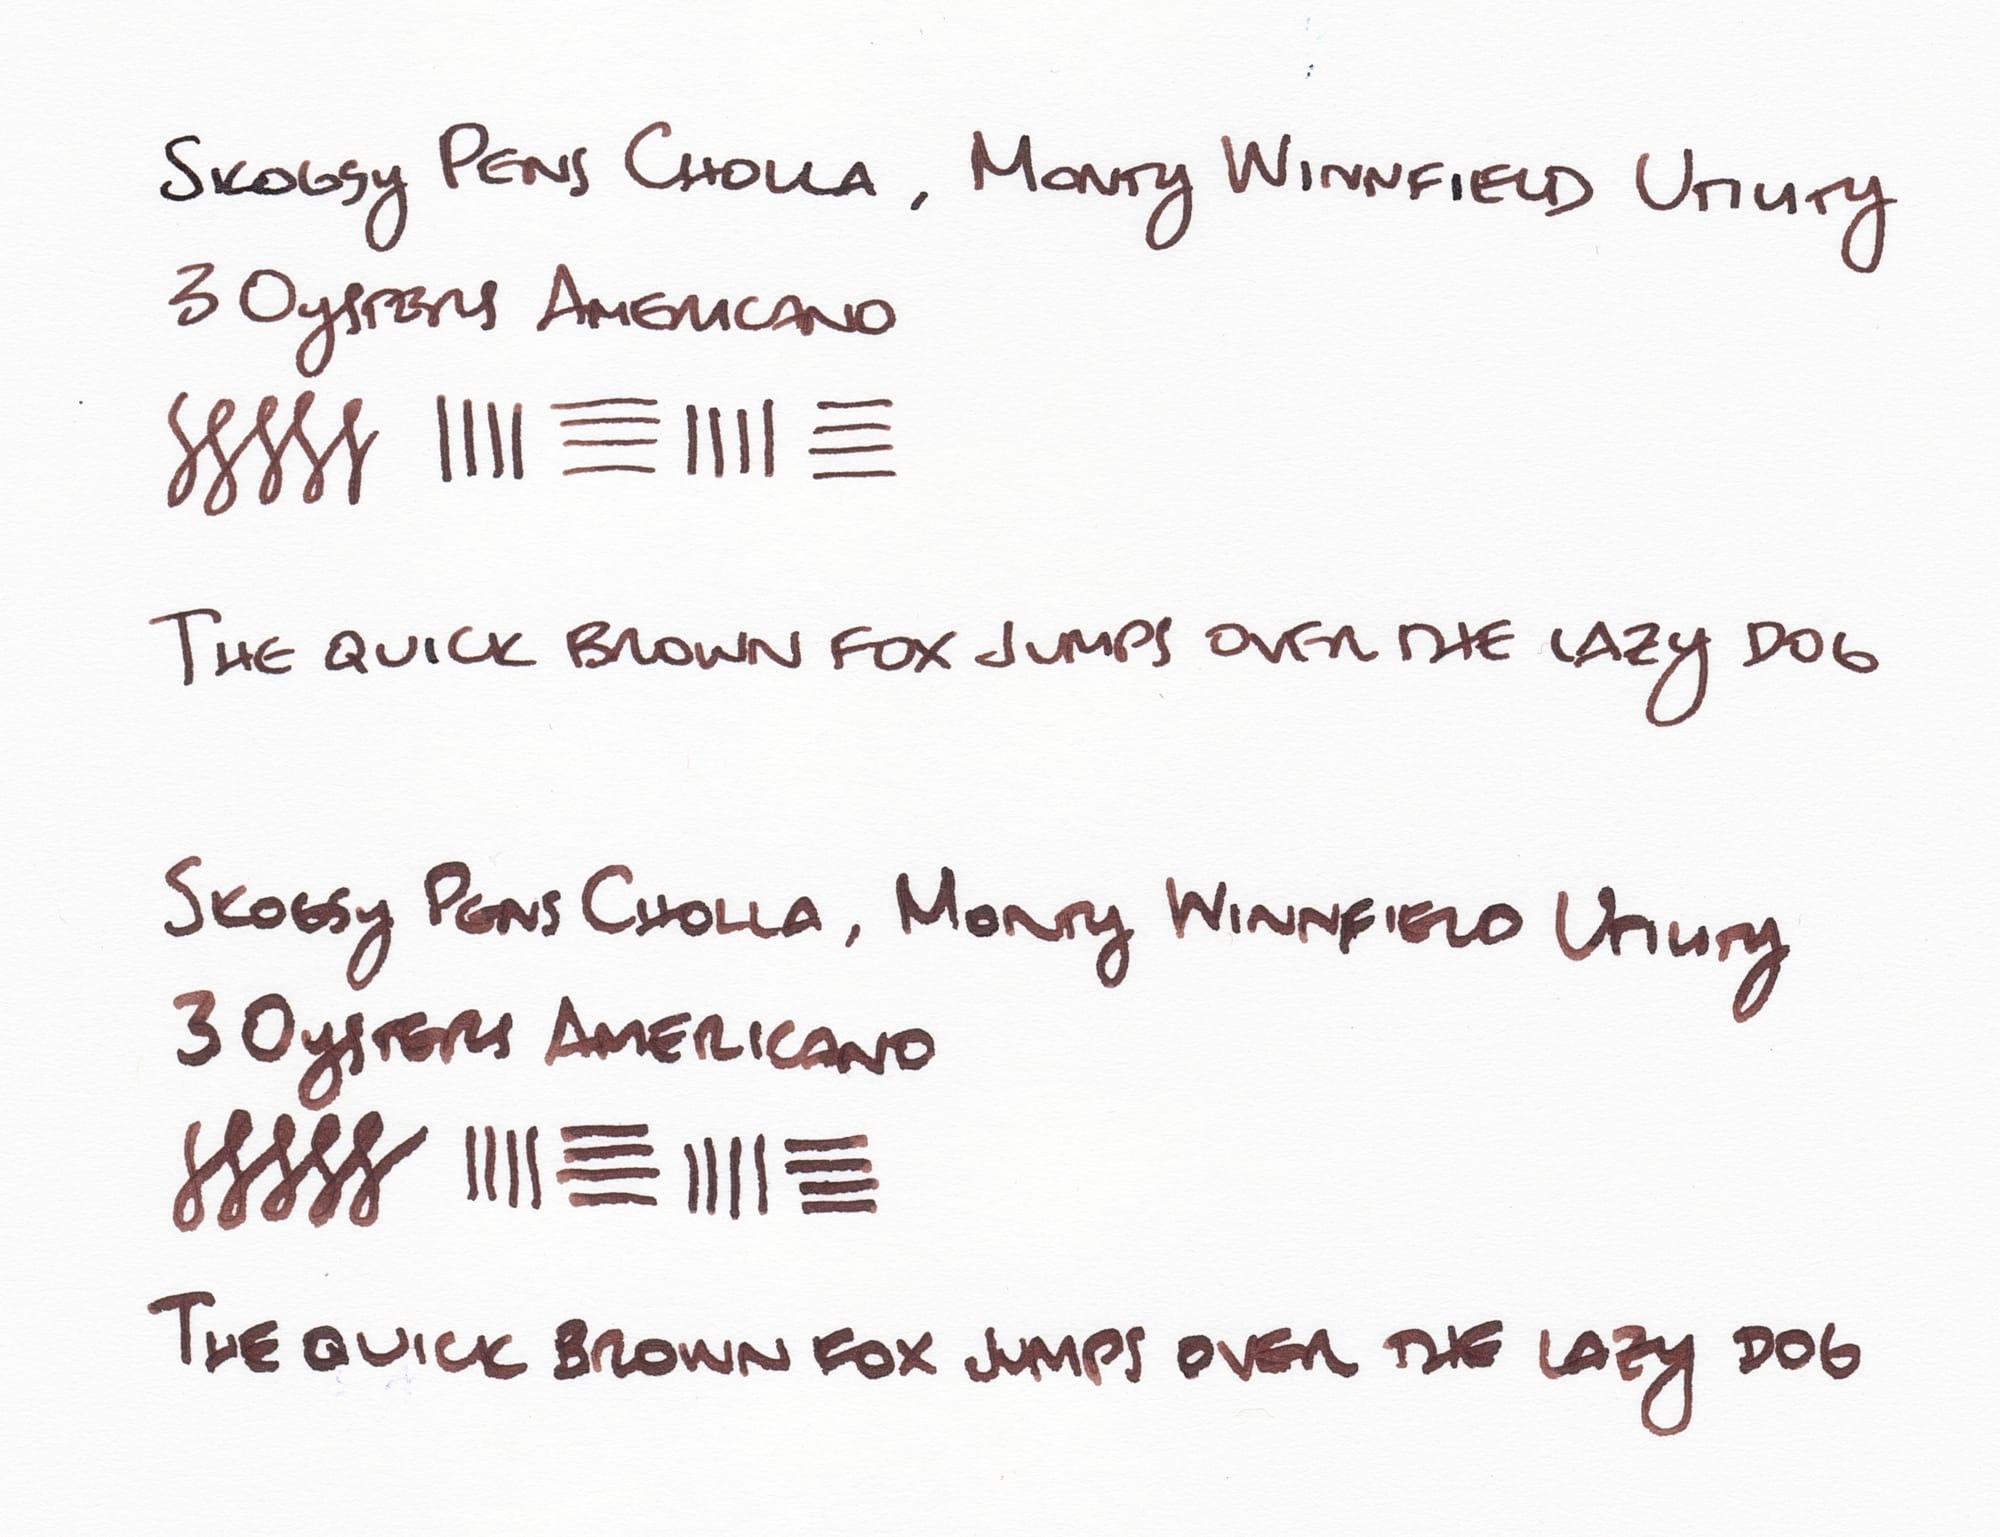 Skogsy Pens Cholla, Monty Winnfield Utility
3 Oysters Americano
The quick brown fox jumps over the lazy dog
Skogsy Pens Cholla, Monty Winnfield Utility
3 Oysters Americano
The quick brown fox jumps over the lazy dog